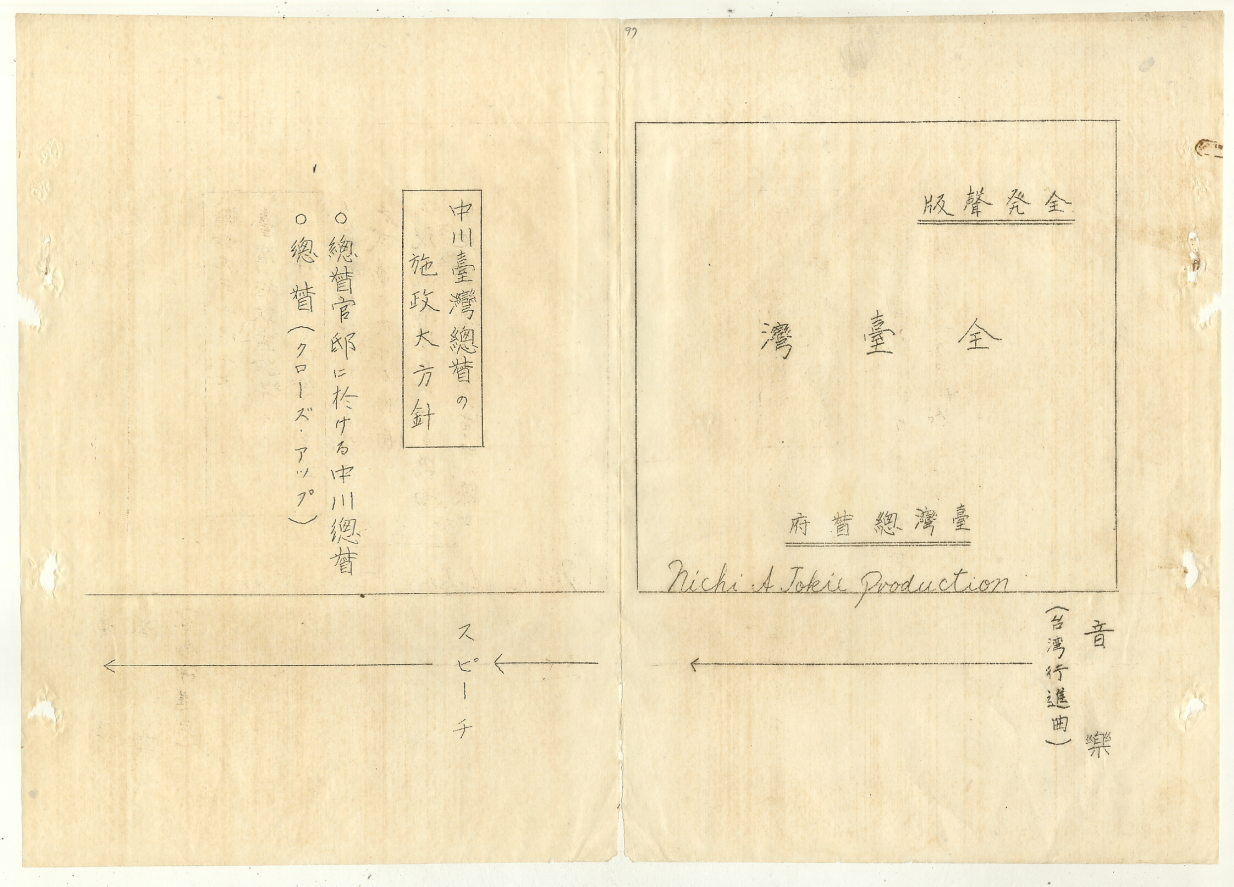 97
全発聲版
全臺灣
臺灣總督府
Nichi A Tokie Production
音樂
(台湾行進曲)
中川臺灣總督の
施政大方針
○總督官邸に於ける中川總督
○總督(クローズ・アップ)
スピーチ